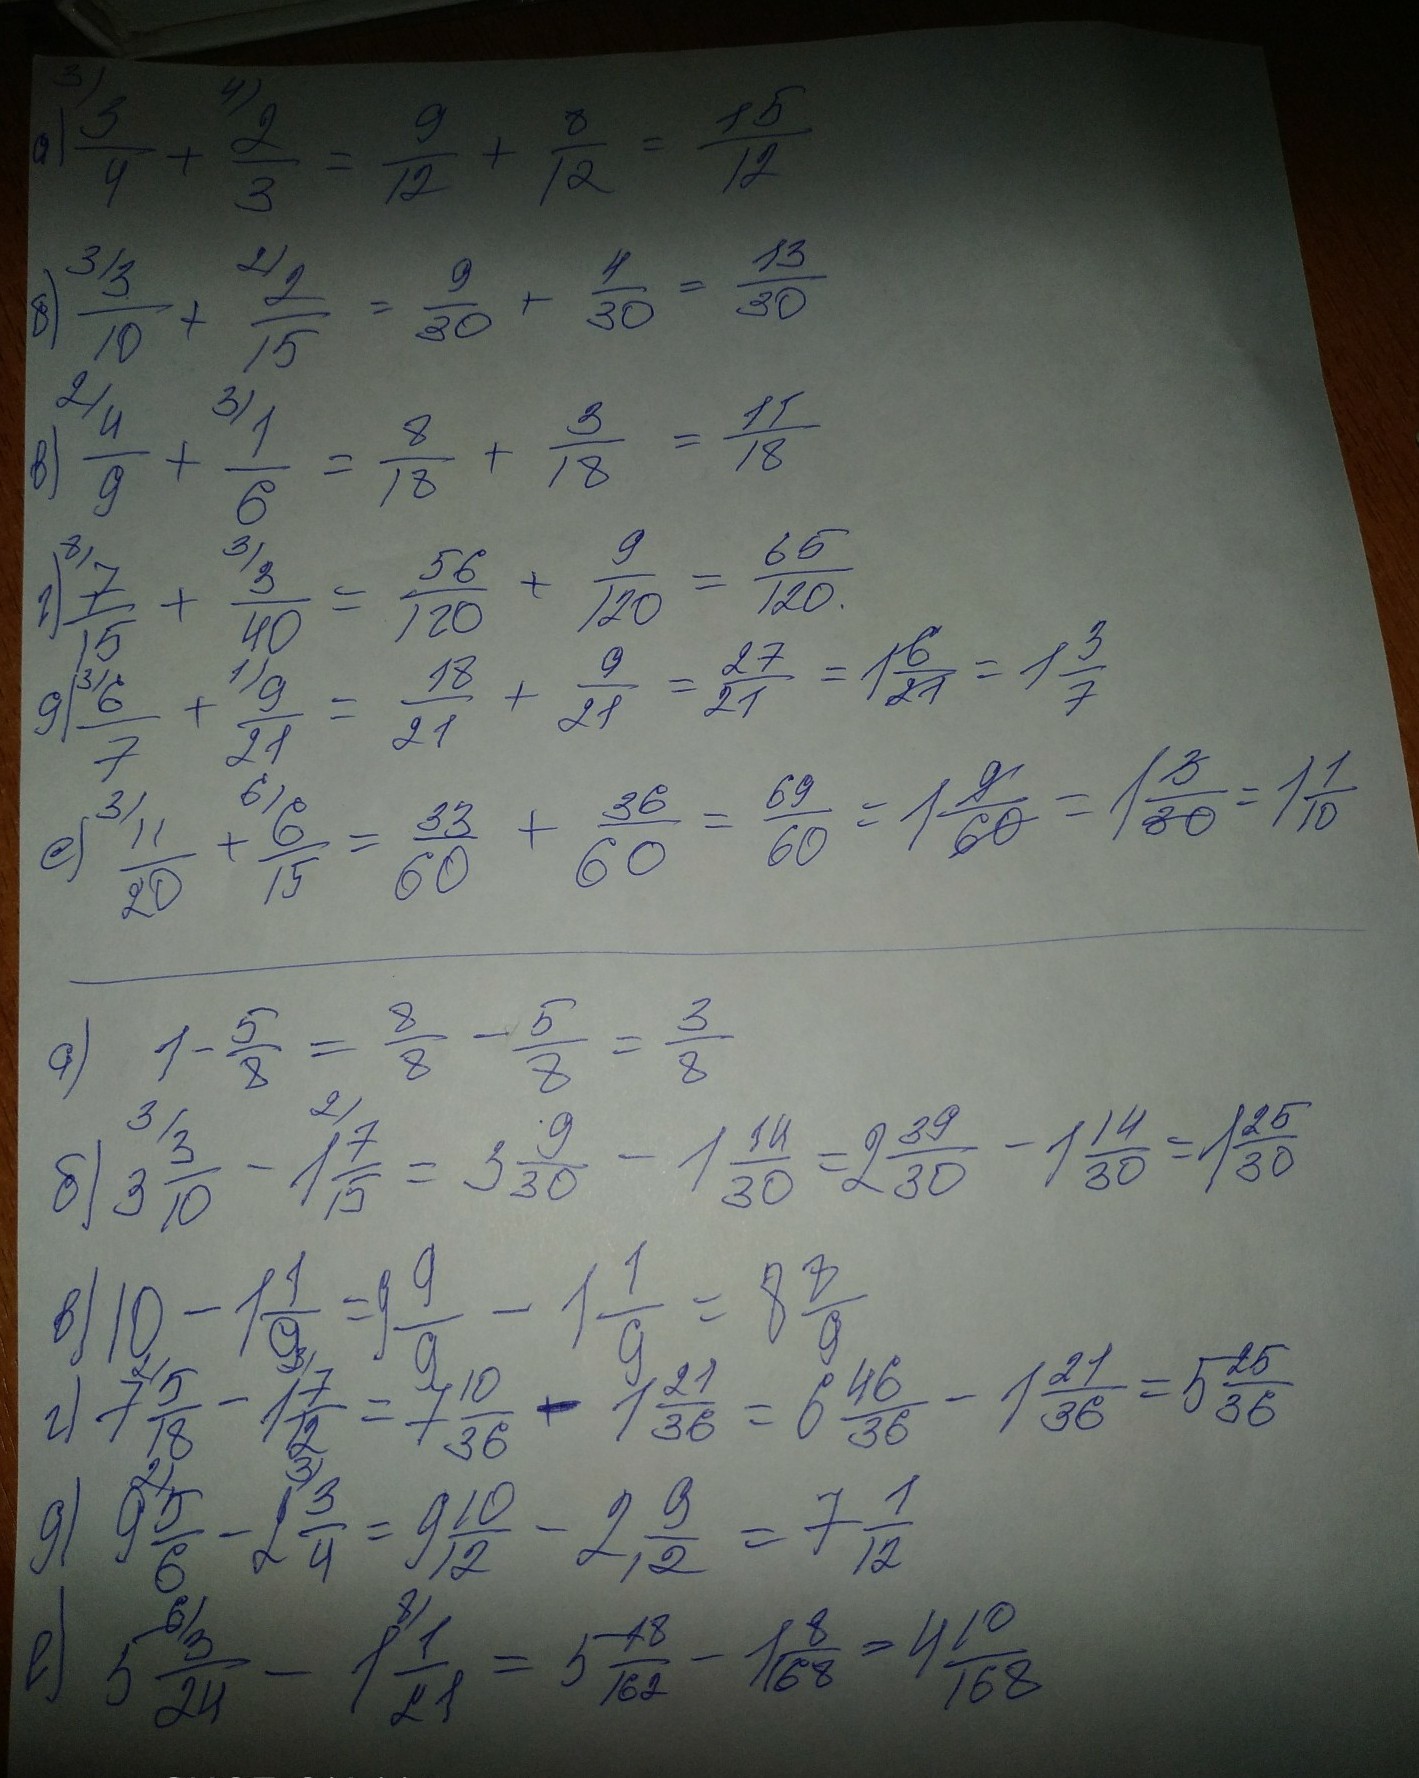 а) 3/ 3/4 + 4/ 2/3 = 9/12 + 8/12 = 15/12
б) 3/ 3/10 + 2/ 2/15 = 9/30 + 4/30 = 13/30
в) 2/ 4/9 + 3/ 1/6 = 8/18 + 3/18 = 11/18
г) 8/ 7/15 + 3/ 3/40 = 56/120 + 9/120 = 65/120.
д) 3/ 6/7 + 1/ 9/21 = 18/21 + 9/21 = 27/21 = 1 6/21 = 1 3/7
е) 3/ 11/20 + 6/ 6/15 = 33/60 + 36/60 = 69/60 = 1 9/60 = 1 3/30 = 1 1/10
а) 1 - 5/8 = 8/8 - 5/8 = 3/8
б) 3 3/ 3/10 - 1 2/ 7/15 = 3 9/30 - 1 14/30 = 2 39/30 - 1 14/30 = 1 25/30
в) 10 - 1 1/9 = 9 9/9 - 1 1/9 = 8 8/9
г) 7 2/ 5/18 - 1 3/ 7/12 = 7 10/36 - 1 21/36 = 6 46/36 - 1 21/36 = 5 25/36
д) 9 2/ 5/6 - 2 3/ 3/4 = 9 10/12 - 2 9/12 = 7 1/12
е) 5 6/ 3/24 - 1 8/ 1/21 = 5 18/162 - 1 8/168 = 4 10/168